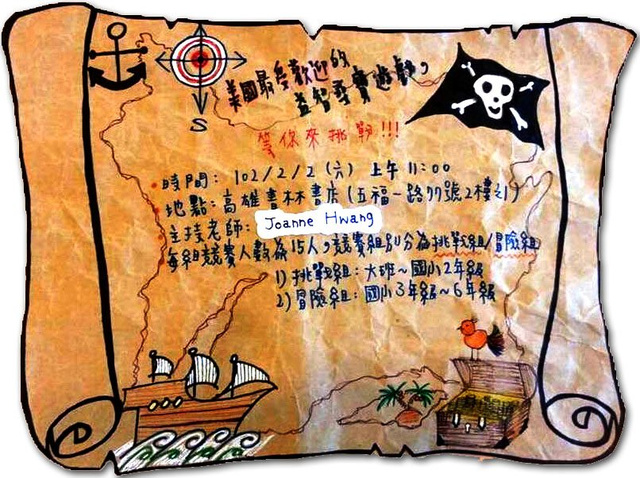 美國最受歡迎的
益智尋寶遊戲，
等你來挑戰!!!
S
時間: 102/2/2 (六) 上午 11:00
地點: 高雄書林書店(五福一路77號2樓之1)
主持老師: Joanne Hwang
每組競賽人數為15人，競賽組別分為挑戰組/冒險組
1) 挑戰組: 大班~國小2年級
2) 冒險組: 國小3年級~6年級